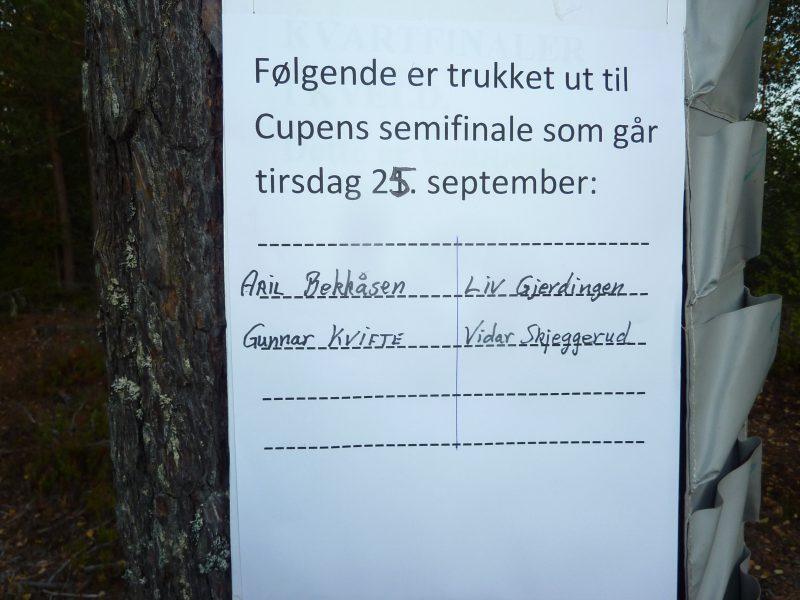 Følgende er trukket ut til
Cupens semifinale som går
tirsdag 25. september:
Aril Bekkåsen Liv Gjerdingen
Gunnar Kvifte Vidar Skjeggerud